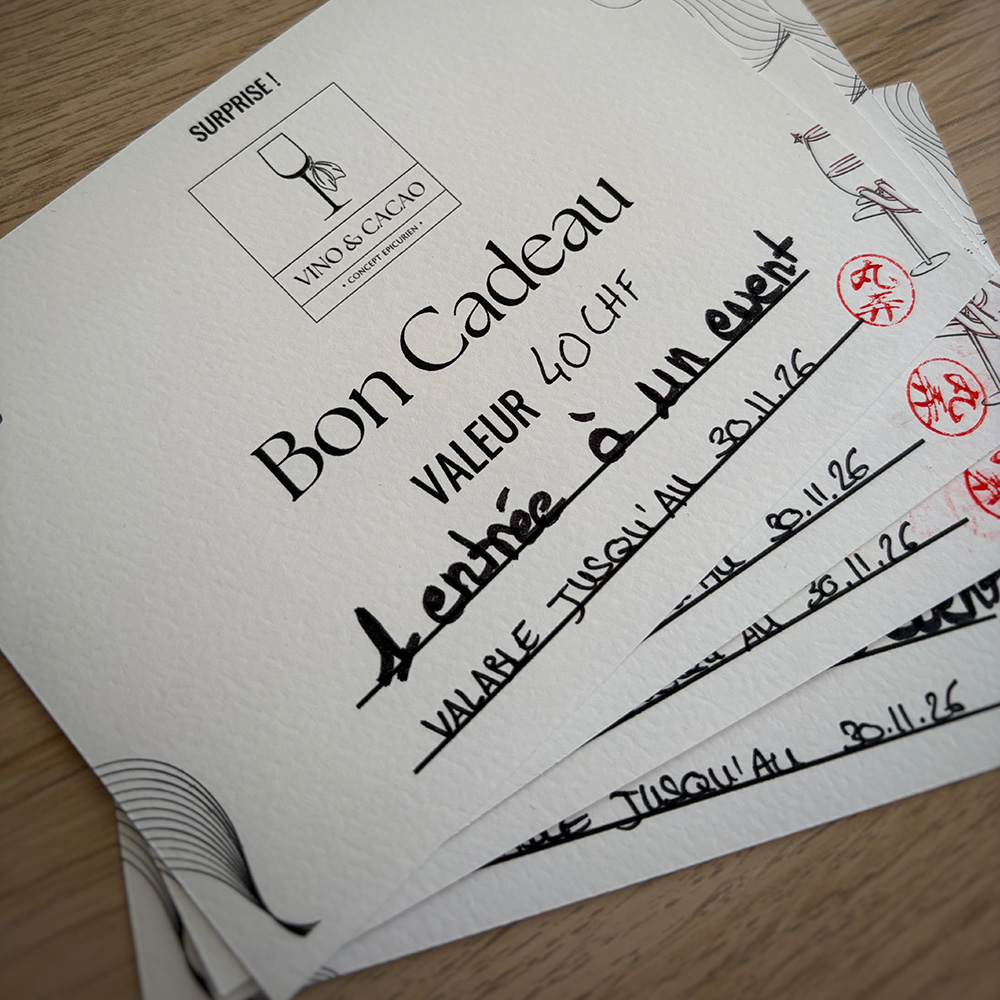 SURPRISE !
VINO & CACAO
• CONCEPT EPICURIEN •
Bon Cadeau
VALEUR 40 CHF
1 entrée à un event
VALABLE JUSQU'AU 30.11.26
AU 30.11.26
AU 30.11.26
JUSQU'AU 30.11.26